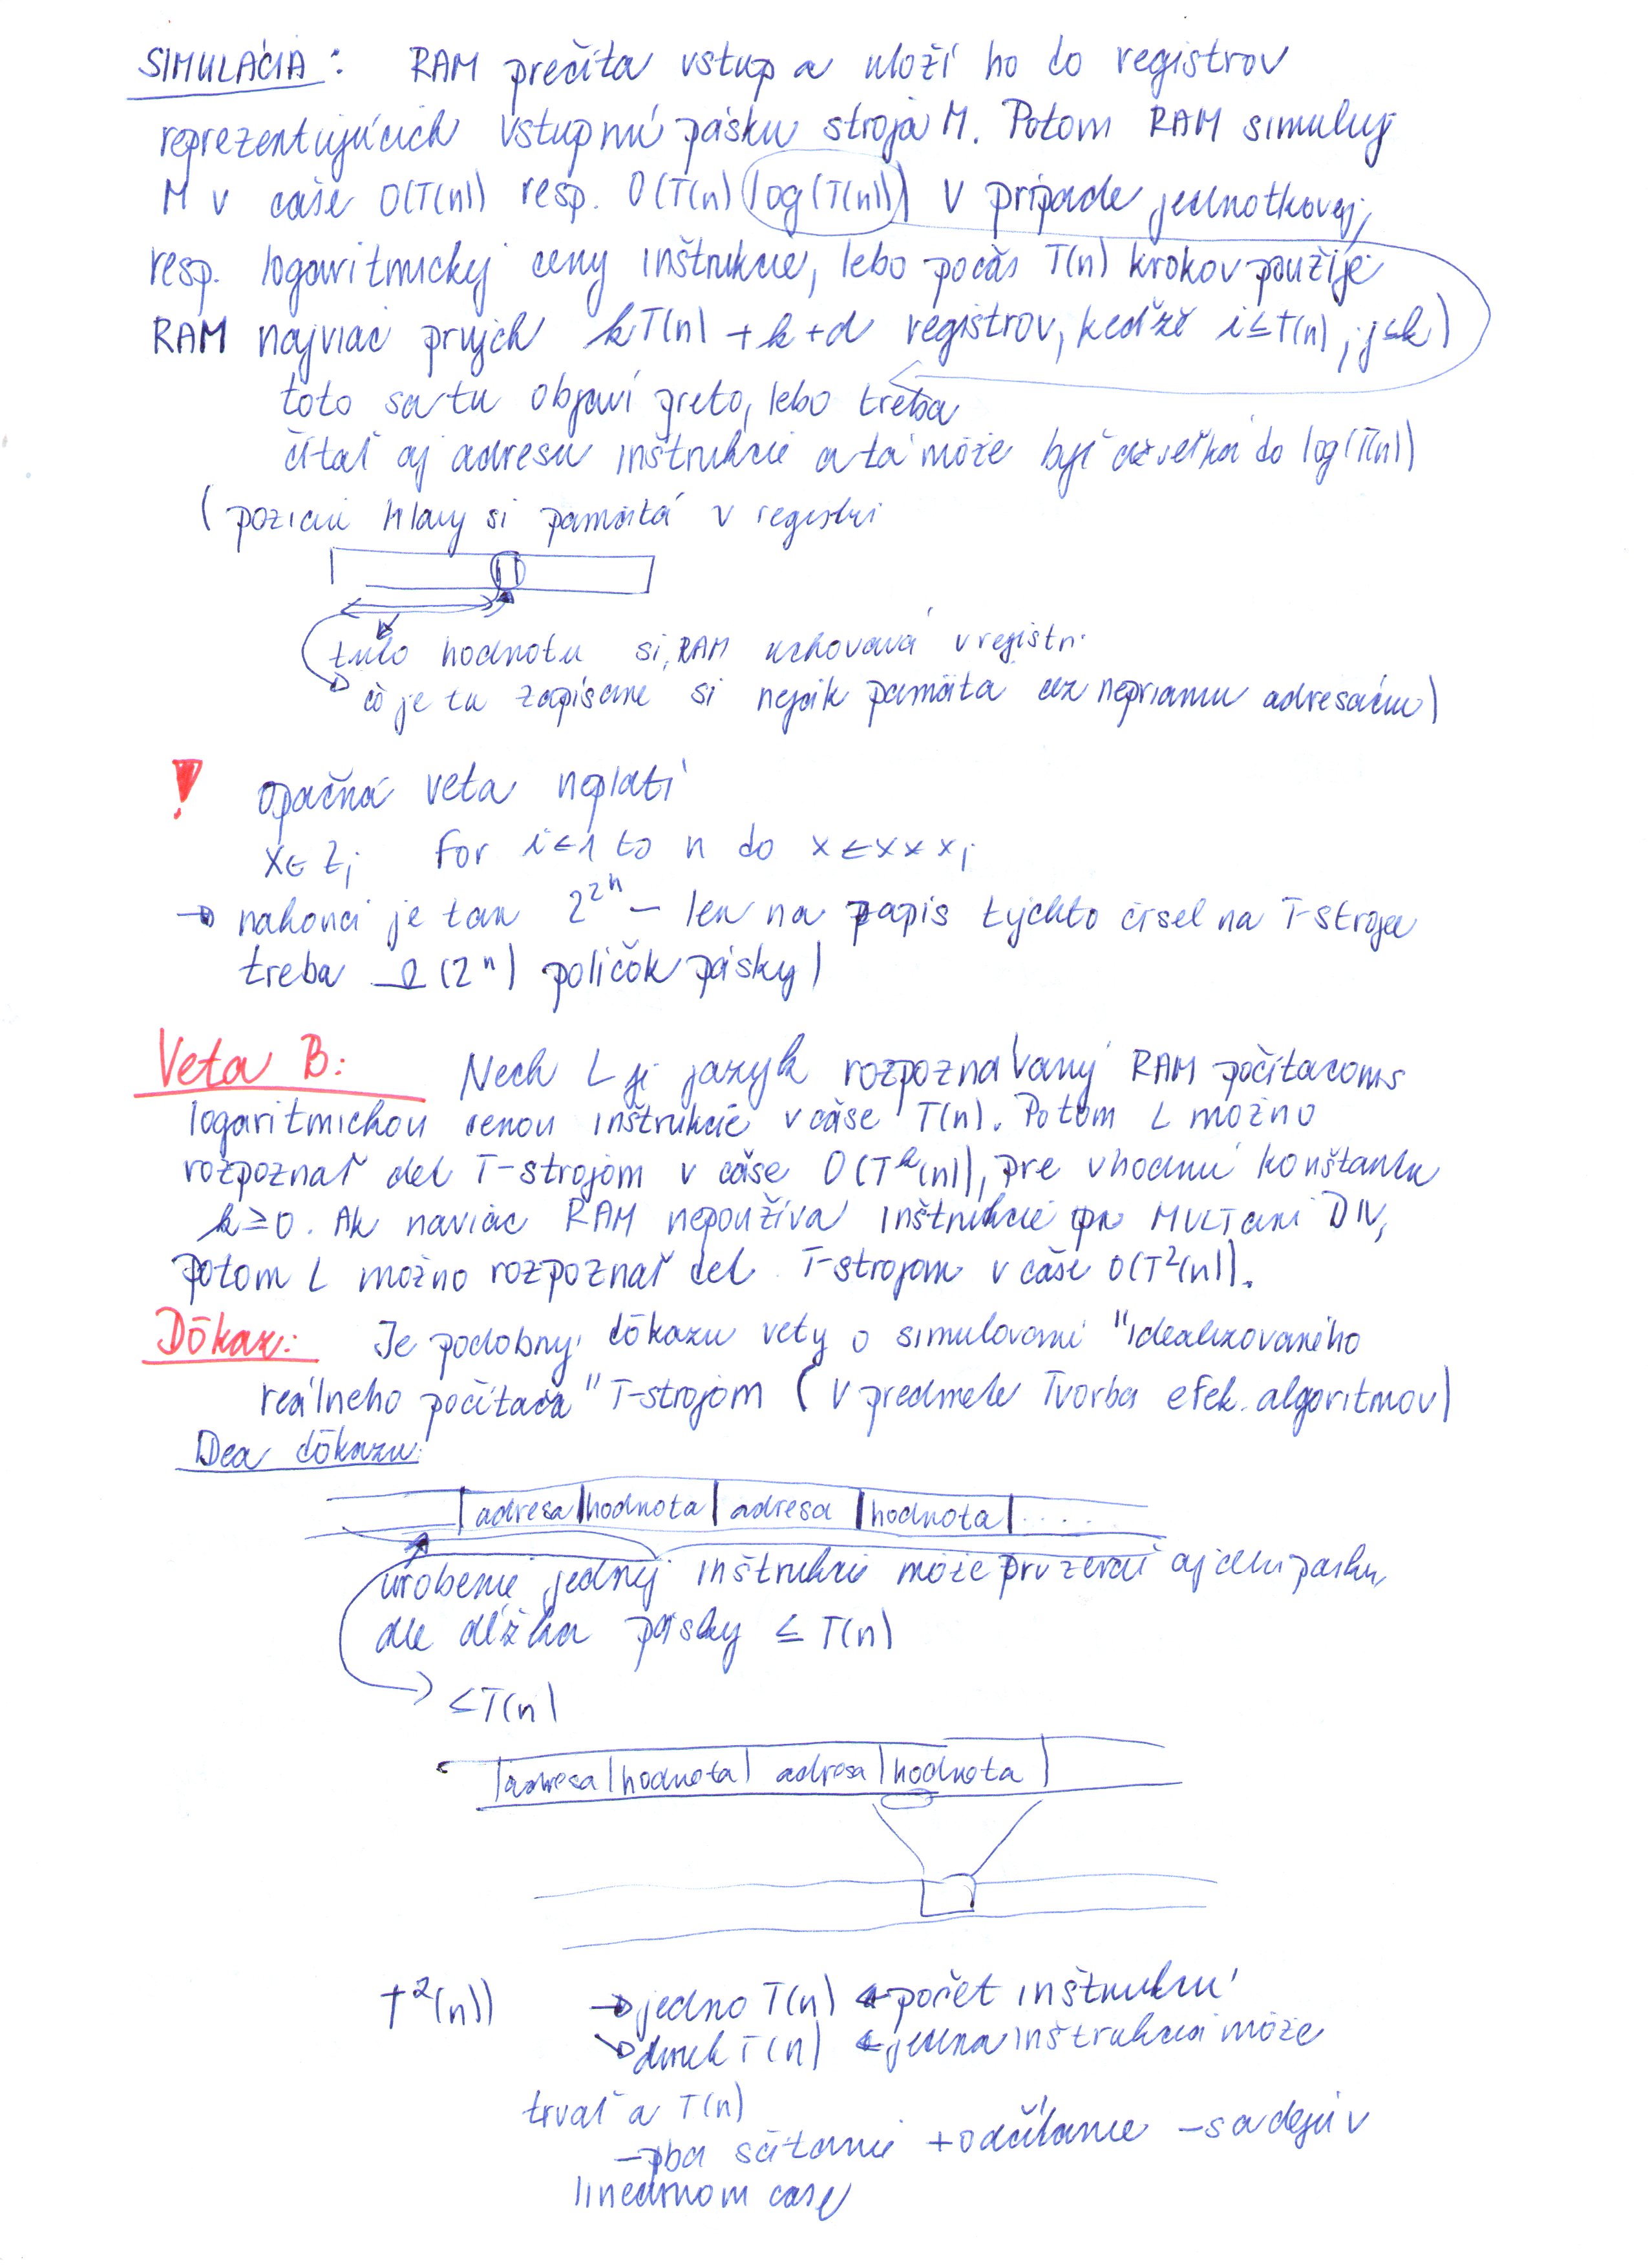 SIMULÁCIA: RAM prečíta vstup a uloží ho do registrov
reprezentujúcich vstupnú pásku stroja M. Potom RAM simuluj
M v čase O(T(n)) resp. O(T(n) log(T(n))) v prípade jednotkovej,
resp. logaritmickej ceny inštrukcie, lebo počas T(n) krokov použije
RAM najviac prvých kT(n) + k + d registrov, keďže i ≤ T(n), j ≤ k)
toto sa tu objaví preto, lebo treba
čítať aj adresu inštrukcie a tá môže byť až veľká do log(T(n))
(pozíciu hlavy si pamätá v registri
túto hodnotu si RAM uchováva v registri
čo je tu zapísané si nejak pamäta cez nepriamu adresáciu)
! opačná veta neplatí
x ← 2; for i ← 1 to n do x ← x * x;
→ nakonci je tam 2^2^n – len na zápis týchto čísel na T-stroja
treba Ω(2^n) políčok pásky)
Veta B: Nech L je jazyk rozpoznávaný RAM počítačom s
logaritmickou cenou inštrukcie v čase T(n). Potom L možno
rozpoznať det T-strojom v čase O(T^k(n)), pre vhodnú konštantu
k ≥ 0. Ak naviac RAM nepoužíva inštrukcie MULT ani DIV,
potom L možno rozpoznať det. T-strojom v čase O(T²(n)).
Dôkaz: Je podobný dôkazu vety o simulovaní "idealizovaného
reálneho počítača" T-strojom (v predmete Tvorba efek. algoritmov)
Idea dôkazu:
| adresa | hodnota | adresa | hodnota | ....
urobenie jednej inštrukcie môže prezerať aj celú pásku,
ale dĺžka pásky ≤ T(n)
≤ T(n)
| adresa | hodnota | adresa | hodnota |
T²(n)) → jedno T(n) ← počet inštrukcií
→ druhé T(n) ← jedna inštrukcia môže
trvať a T(n)
– sčítanie + odčítanie – sa dejú v
lineárnom čase